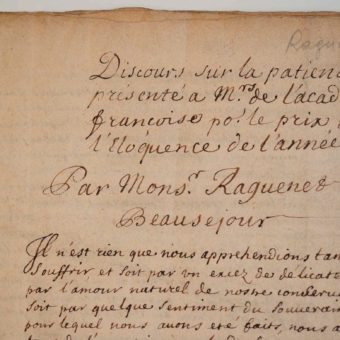 Ragu
Discours sur la patien
présenté a M.rs de l'acad
françoise po.r le prix
l'Eloquence de l'année
Par Mons.r Raguenet
Beausejour
Il n'est rien que nous apprehendions tan
souffrir et soit par vn excez de delicate
par l'amour naturel de nostre conserua
soit par quelque sentiment du souverain
pour lequel nous auons eté faits, nous a